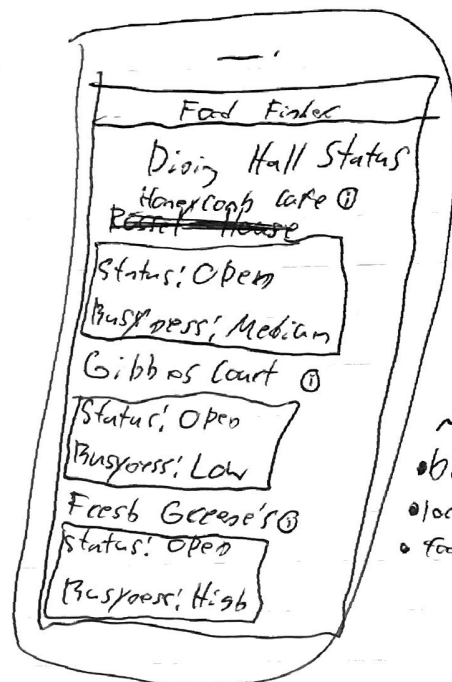 Food Finder
Dining Hall Status
Honeycomb Cafe ⓘ
Status: Open
Busyness: Medium
Gibbes Court ⓘ
Status: Open
Busyness: Low
Fresh Greene's ⓘ
Status: Open
Busyness: High